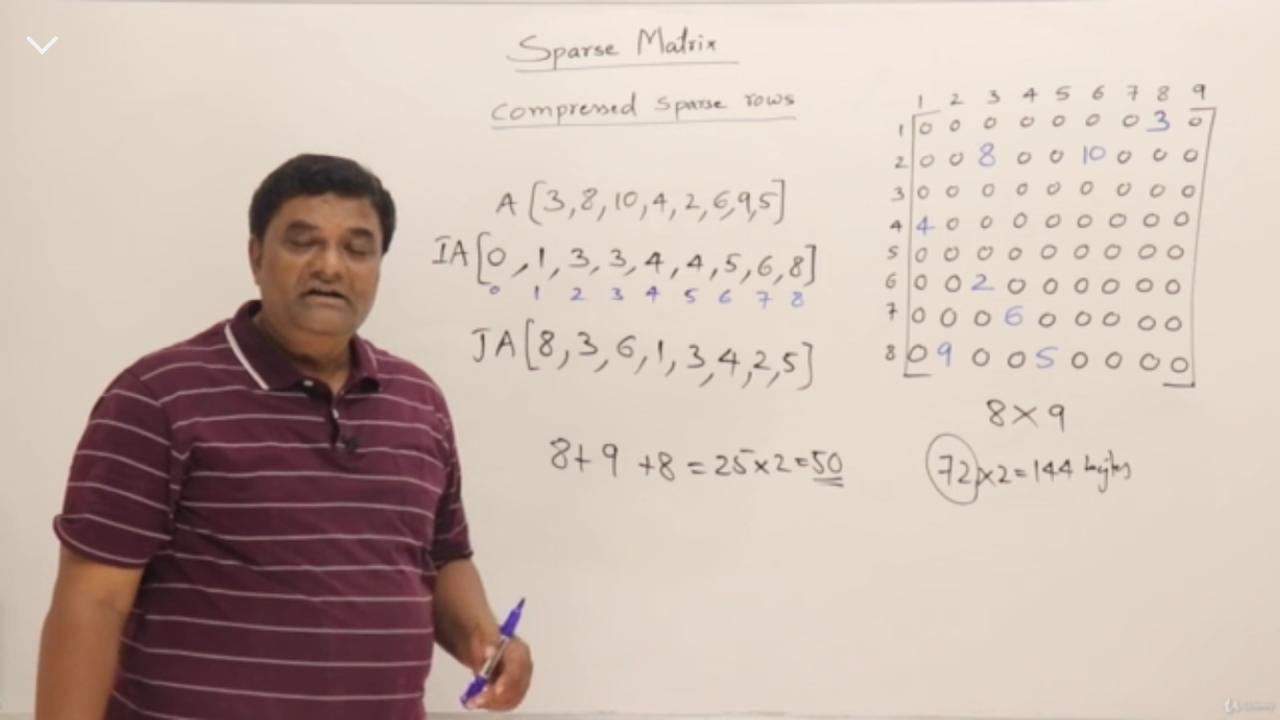 Sparse Matrix
Compressed Sparse rows
A [3,8,10,4,2,6,9,5]
IA [0,1,3,3,4,4,5,6,8]
0 1 2 3 4 5 6 7 8
JA [8,3,6,1,3,4,2,5]
8+9+8=25×2=50
1 2 3 4 5 6 7 8 9
1 0 0 0 0 0 0 0 3 0
2 0 0 8 0 0 10 0 0 0
3 0 0 0 0 0 0 0 0 0
4 4 0 0 0 0 0 0 0 0
5 0 0 0 0 0 0 0 0 0
6 0 0 2 0 0 0 0 0 0
7 0 0 0 6 0 0 0 0 0
8 0 9 0 0 5 0 0 0 0
8×9
72×2=144 bytes
Udemy